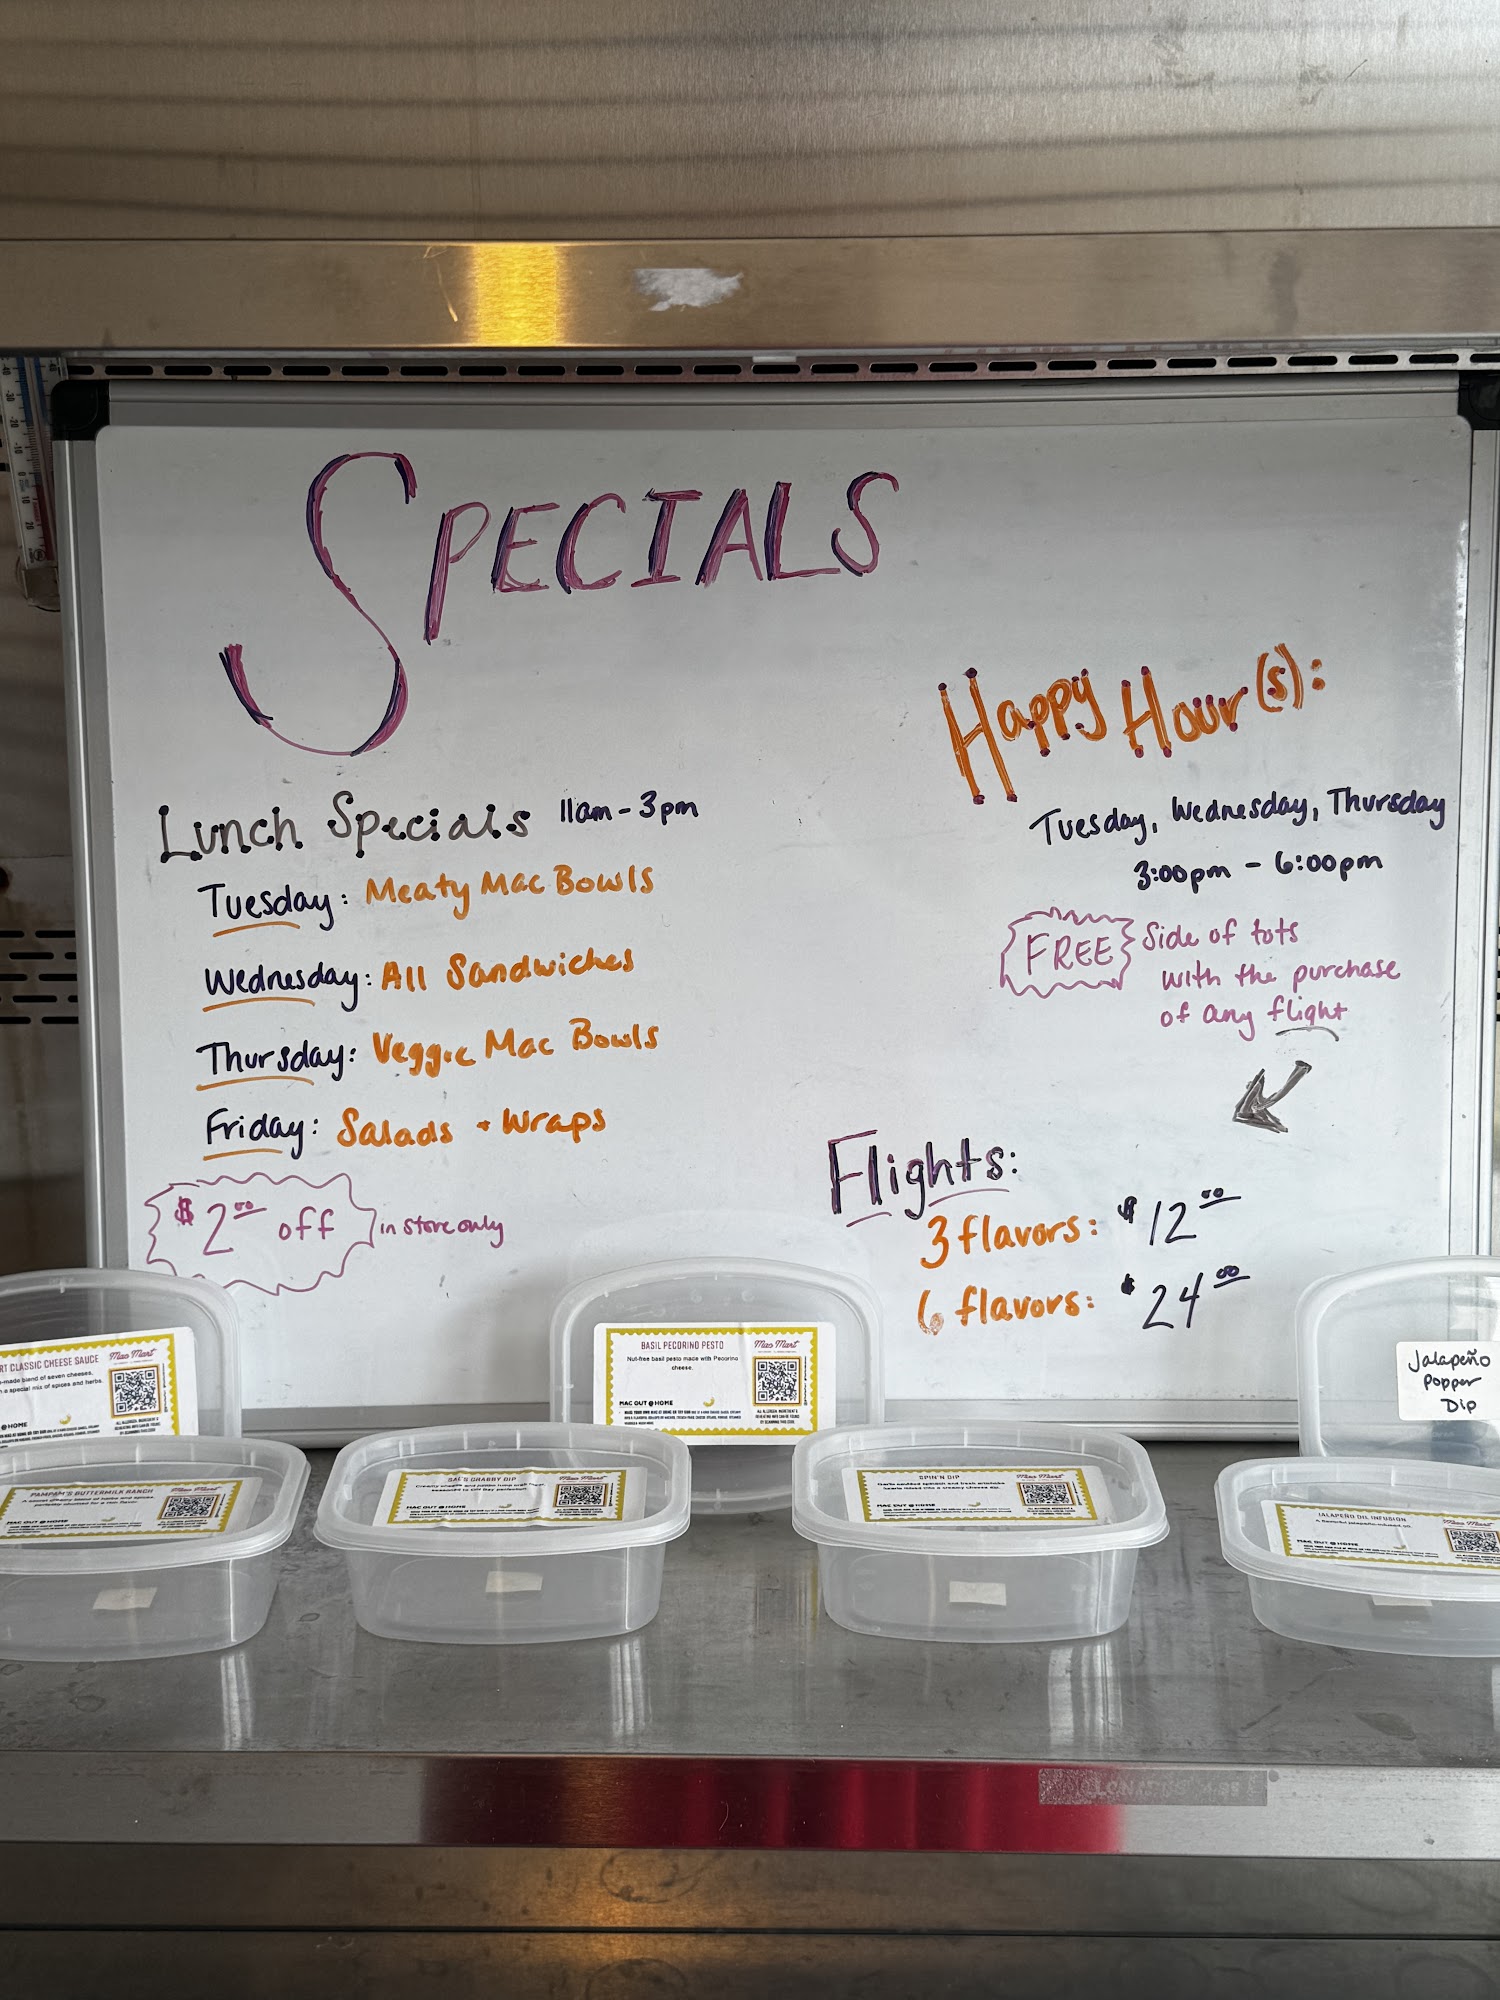 SPECIALS
Happy Hour(s):
Lunch Specials 11am - 3pm
Tuesday: Meaty Mac Bowls
Wednesday: All Sandwiches
Thursday: Veggie Mac Bowls
Friday: Salads + Wraps
$2.00 off in store only
Tuesday, Wednesday, Thursday
3:00pm - 6:00pm
FREE Side of tots
with the purchase
of any flight
Flights:
3 flavors: $12.00
6 flavors: $24.00
RT CLASSIC CHEESE SAUCE
Mac Mart
-made blend of seven cheeses,
a special mix of spices and herbs.
@HOME
BASIL PECORINO PESTO
Mac Mart
Nut-free basil pesto made with Pecorino
cheese.
MAC OUT @ HOME
Jalapeño
Popper
Dip
PAMPAM'S BUTTERMILK RANCH
SAL'S CRABBY DIP
Mac Mart
MAC OUT @ HOME
SPIN'N DIP
Mac Mart
MAC OUT @ HOME
JALAPEÑO OIL INFUSION
Mac Mart
A flavorful jalapeño-infused oil.
MAC OUT @ HOME